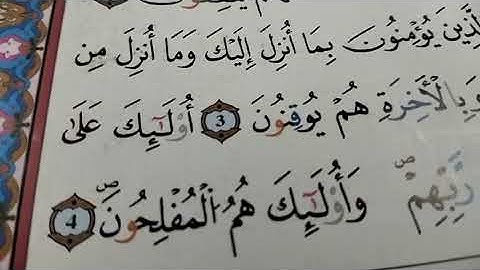 هُمْ يُنفِقُونَ
الَّذِينَ يُؤْمِنُونَ بِمَا أُنزِلَ إِلَيْكَ وَمَا أُنزِلَ مِن
وَبِالْأَخِرَةِ هُمْ يُوقِنُونَ 3 أُوْلَٰٓئِكَ عَلَىٰ
رَّبِّهِمْ ۖ وَأُوْلَٰٓئِكَ هُمُ الْمُفْلِحُونَ ۖ 4